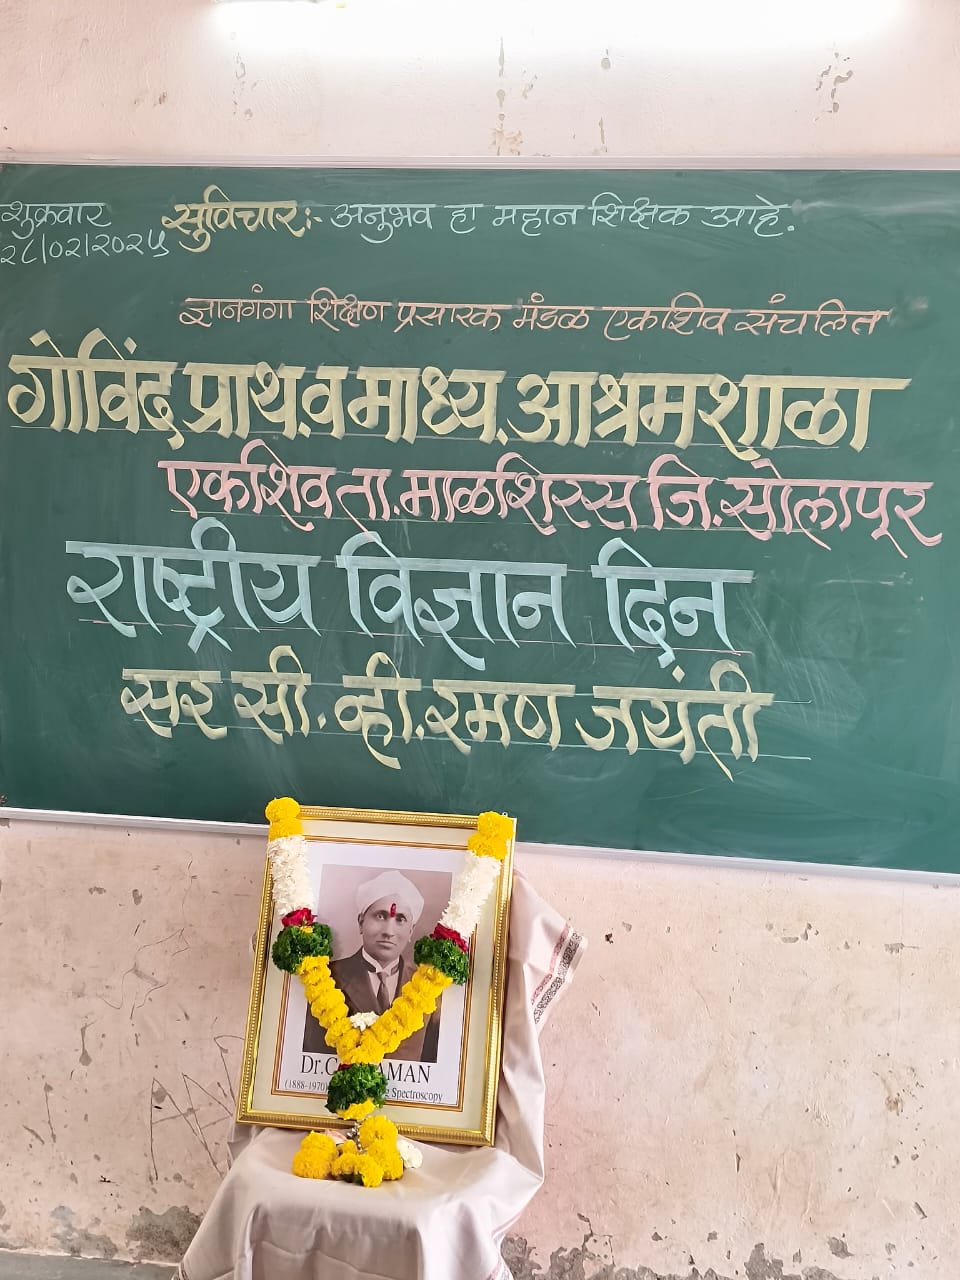 शुक्रवार
२८/०२/२०२५
सुविचार:- अनुभव हा महान शिक्षक आहे.
ज्ञानगंगा शिक्षण प्रसारक मंडळ एकशिव संचलित
गोविंद प्राथ.व माध्य.आश्रमशाळा
एकशिव ता.माळशिरस जि.सोलापूर
राष्ट्रीय विज्ञान दिन
सर सी. व्ही.रमण जयंती
Dr.C AMAN
(1888-1970) Spectroscopy